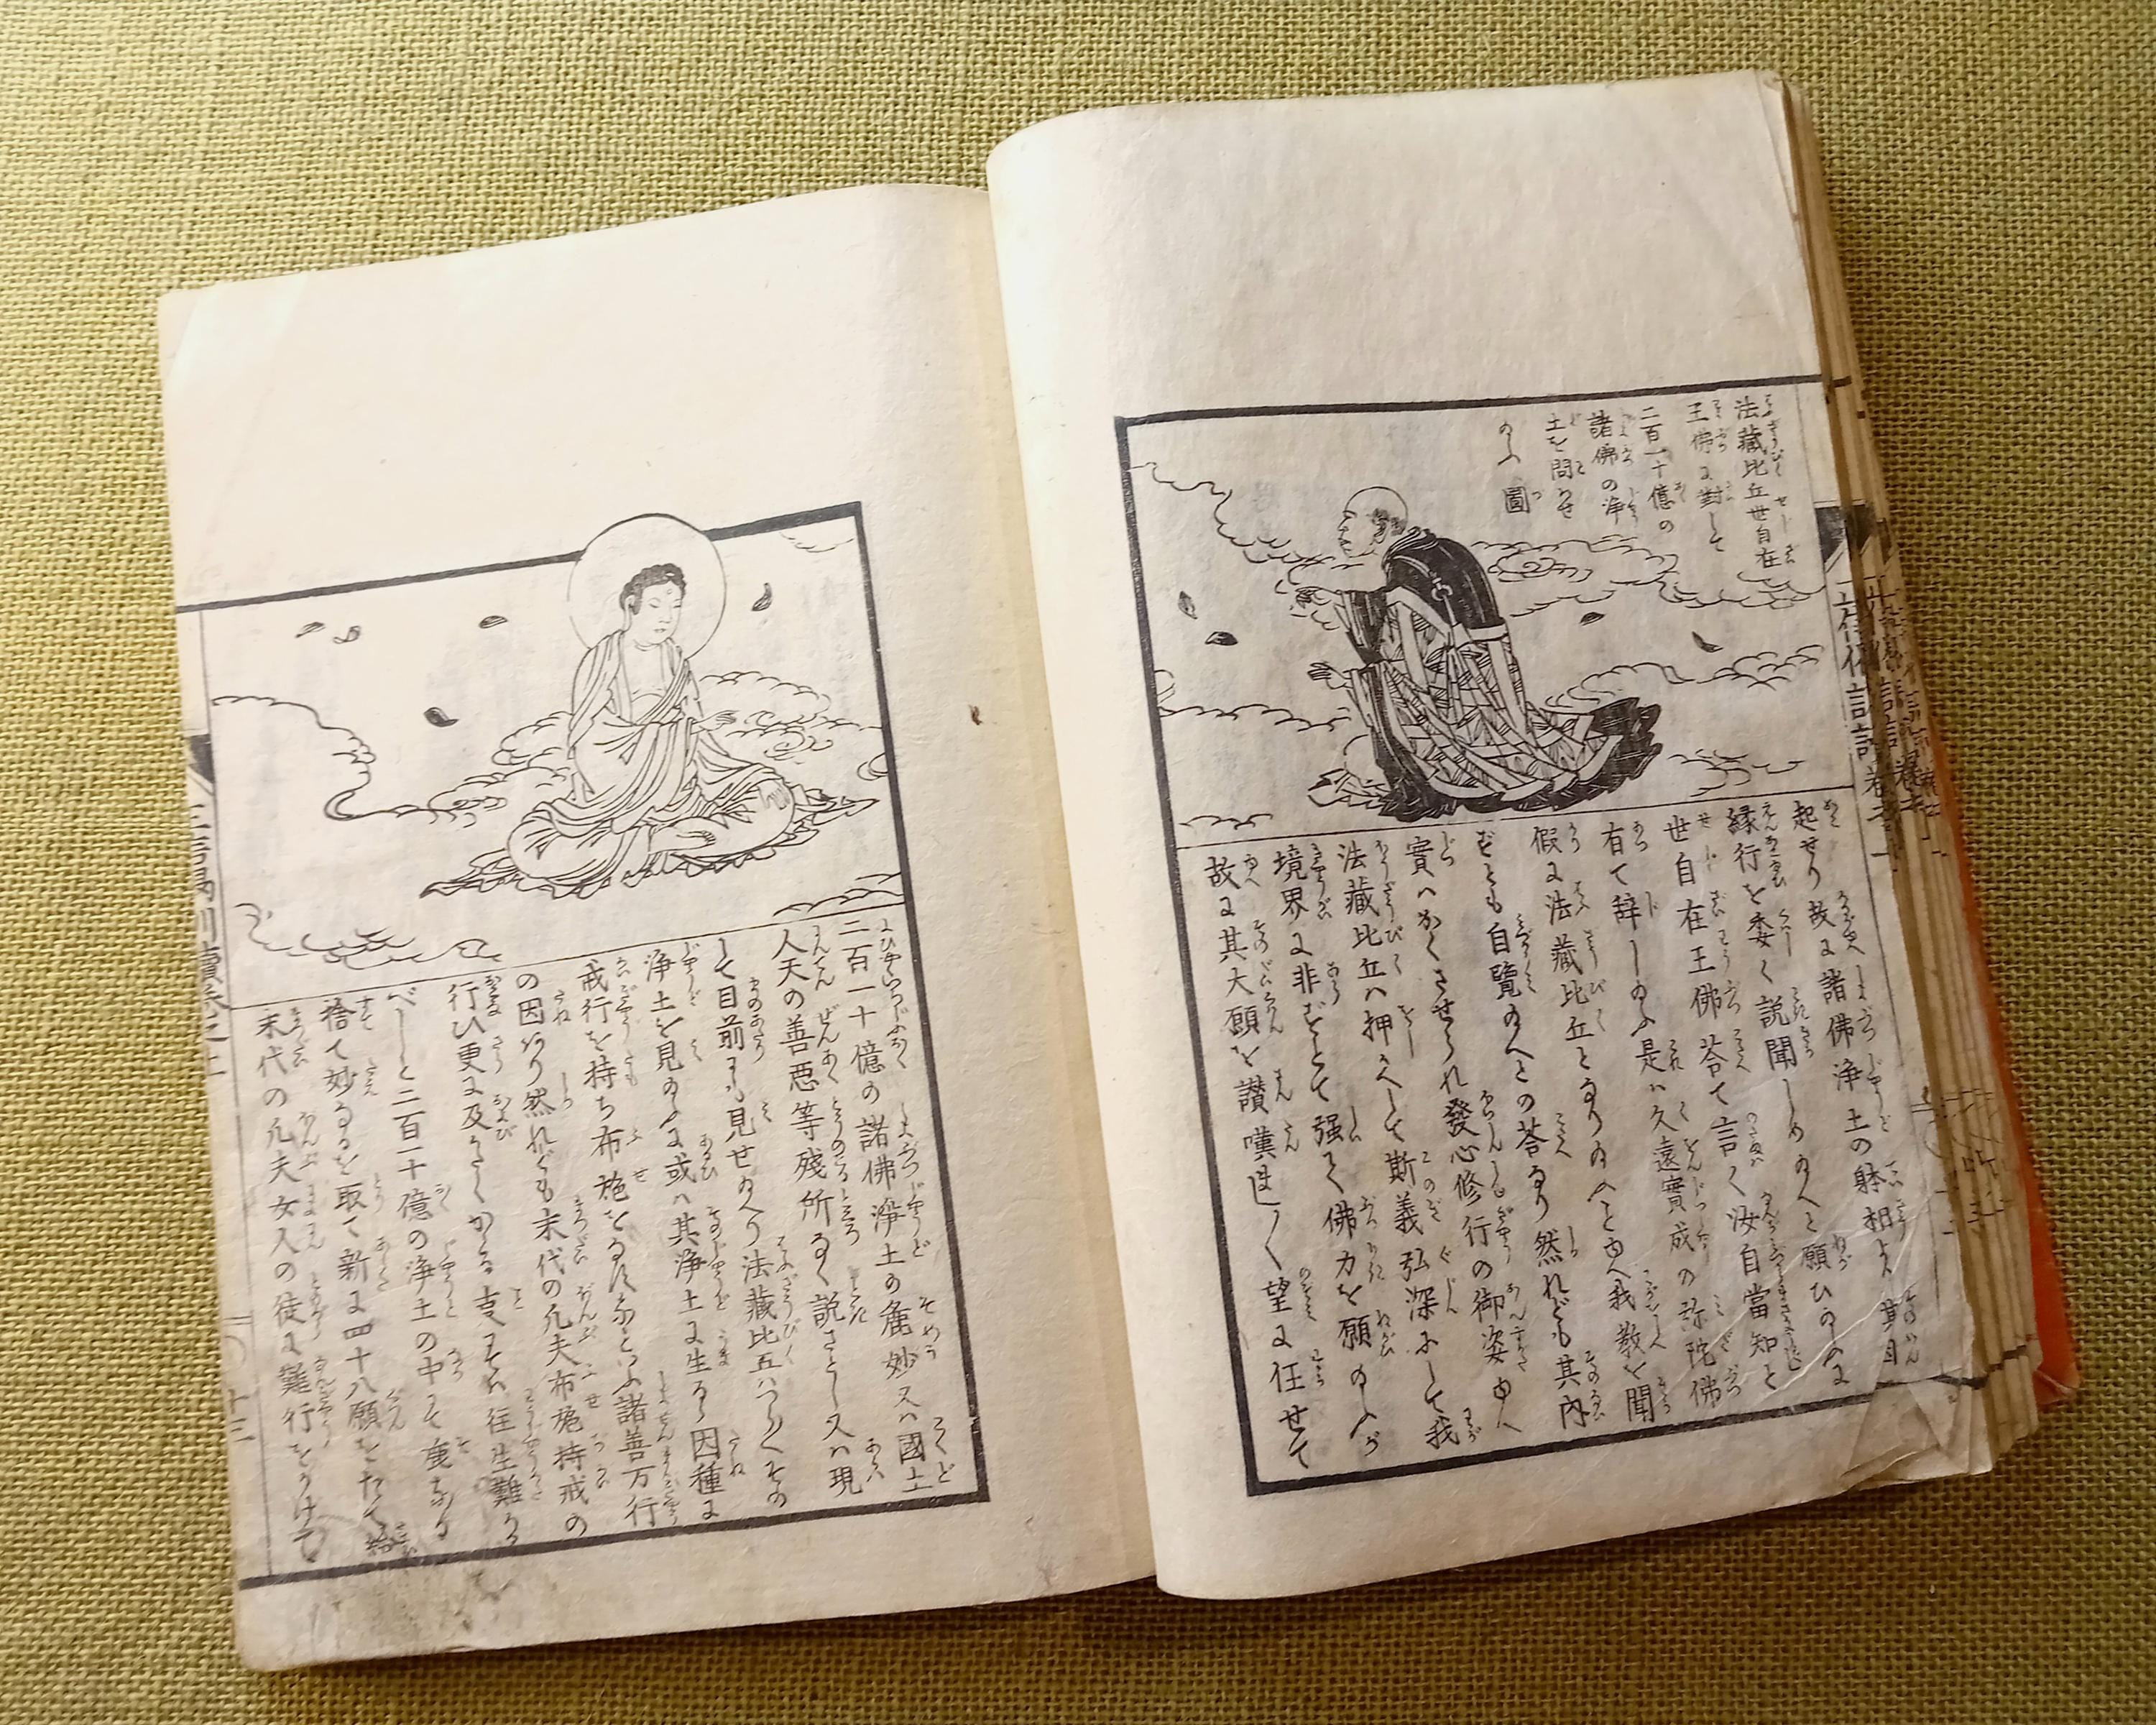 法藏比丘世自在
王佛に對して
二百一十億の
諸佛の浄
土を問せ
のふ圖
起せり故に諸佛浄土の躰相より其因
縁行を委く説聞しめのへと願ひのふに
世自在王佛荅て言く汝自當知と
有て辞しのふ是ハ久遠實成の弥陀佛
假に法藏比丘となりのへとゆへ我教を聞
ずとも自覽のへとの荅なり然れども其内
實ハかくさせられ發心修行の御姿ゆへ
法藏比丘ハ押かへして斯義弘深にして我
境界に非ずとて强て佛力を願のふが
故に其大願を讃嘆まし〱望に任せて
二百一十億の諸佛淨土の麁妙又ハ國土
人天の善悪等殘所なく説さとし又ハ現
して目前に見せのへり法藏比丘ハつら〱その
浄土を見のふに或ハ其浄土に生るゝ因種に
戒行を持ち布施をなすなどいふ諸善万行
の因あり然れども末代の凡夫布施持戒の
行ひ更に及がたくかゝる事にてハ往生難かる
べしと二百一十億の浄土の中にて麁なる
捨て妙なるを取て新に四十八願をたて給
末代の凡夫女人の徒に難行をうけて